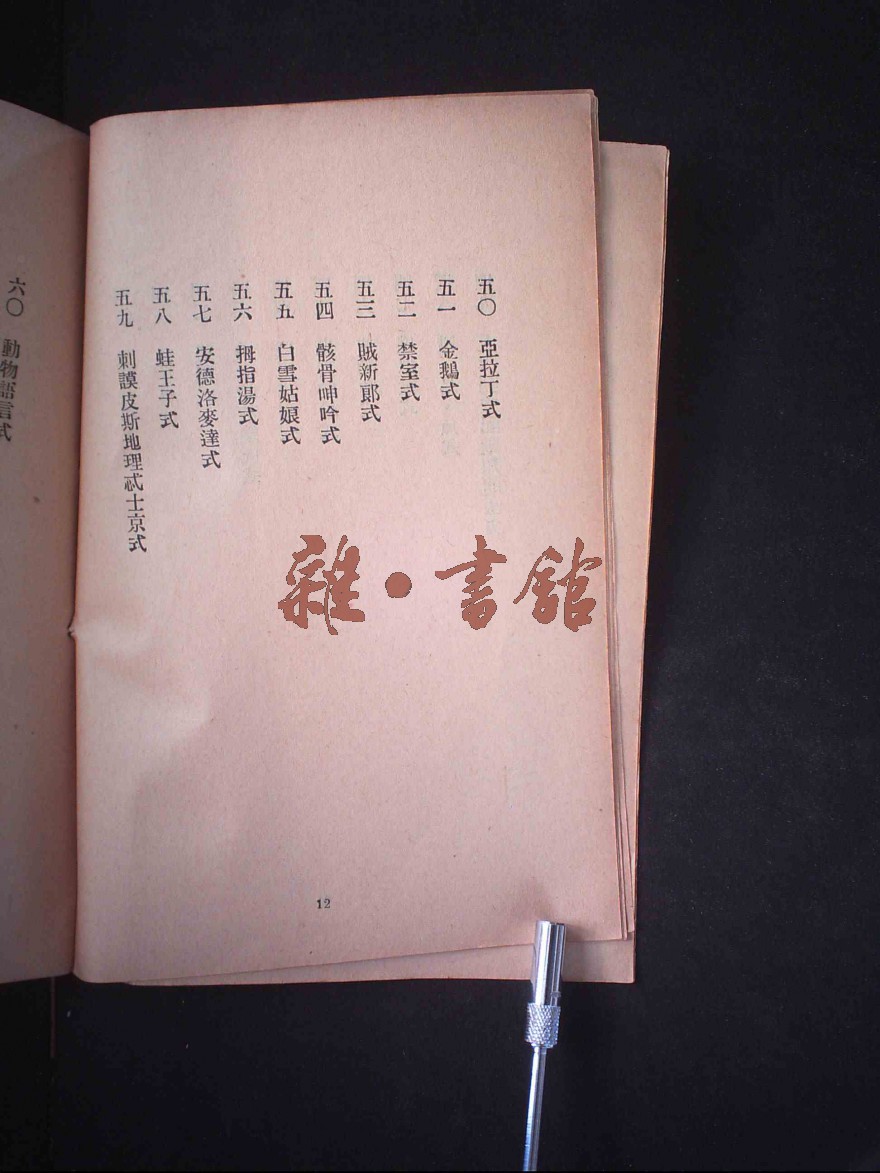 五〇 亞拉丁式
五一 金鵝式
五二 禁室式
五三 賊新郎式
五四 骸骨呻吟式
五五 白雪姑娘式
五六 拇指湯式
五七 安德洛麥達式
五八 蛙王子式
五九 刺謨皮斯地理忒士京式
12
六〇 動物語言式
雜·書館